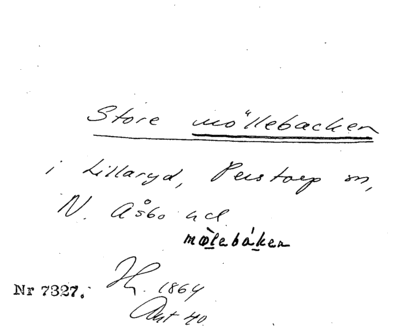 Store möllebacken
i Lillaryd, Perstorp sn,
N. Åsbo hd
mø̀lebáken
Nr 7327. 1864
Ant 40